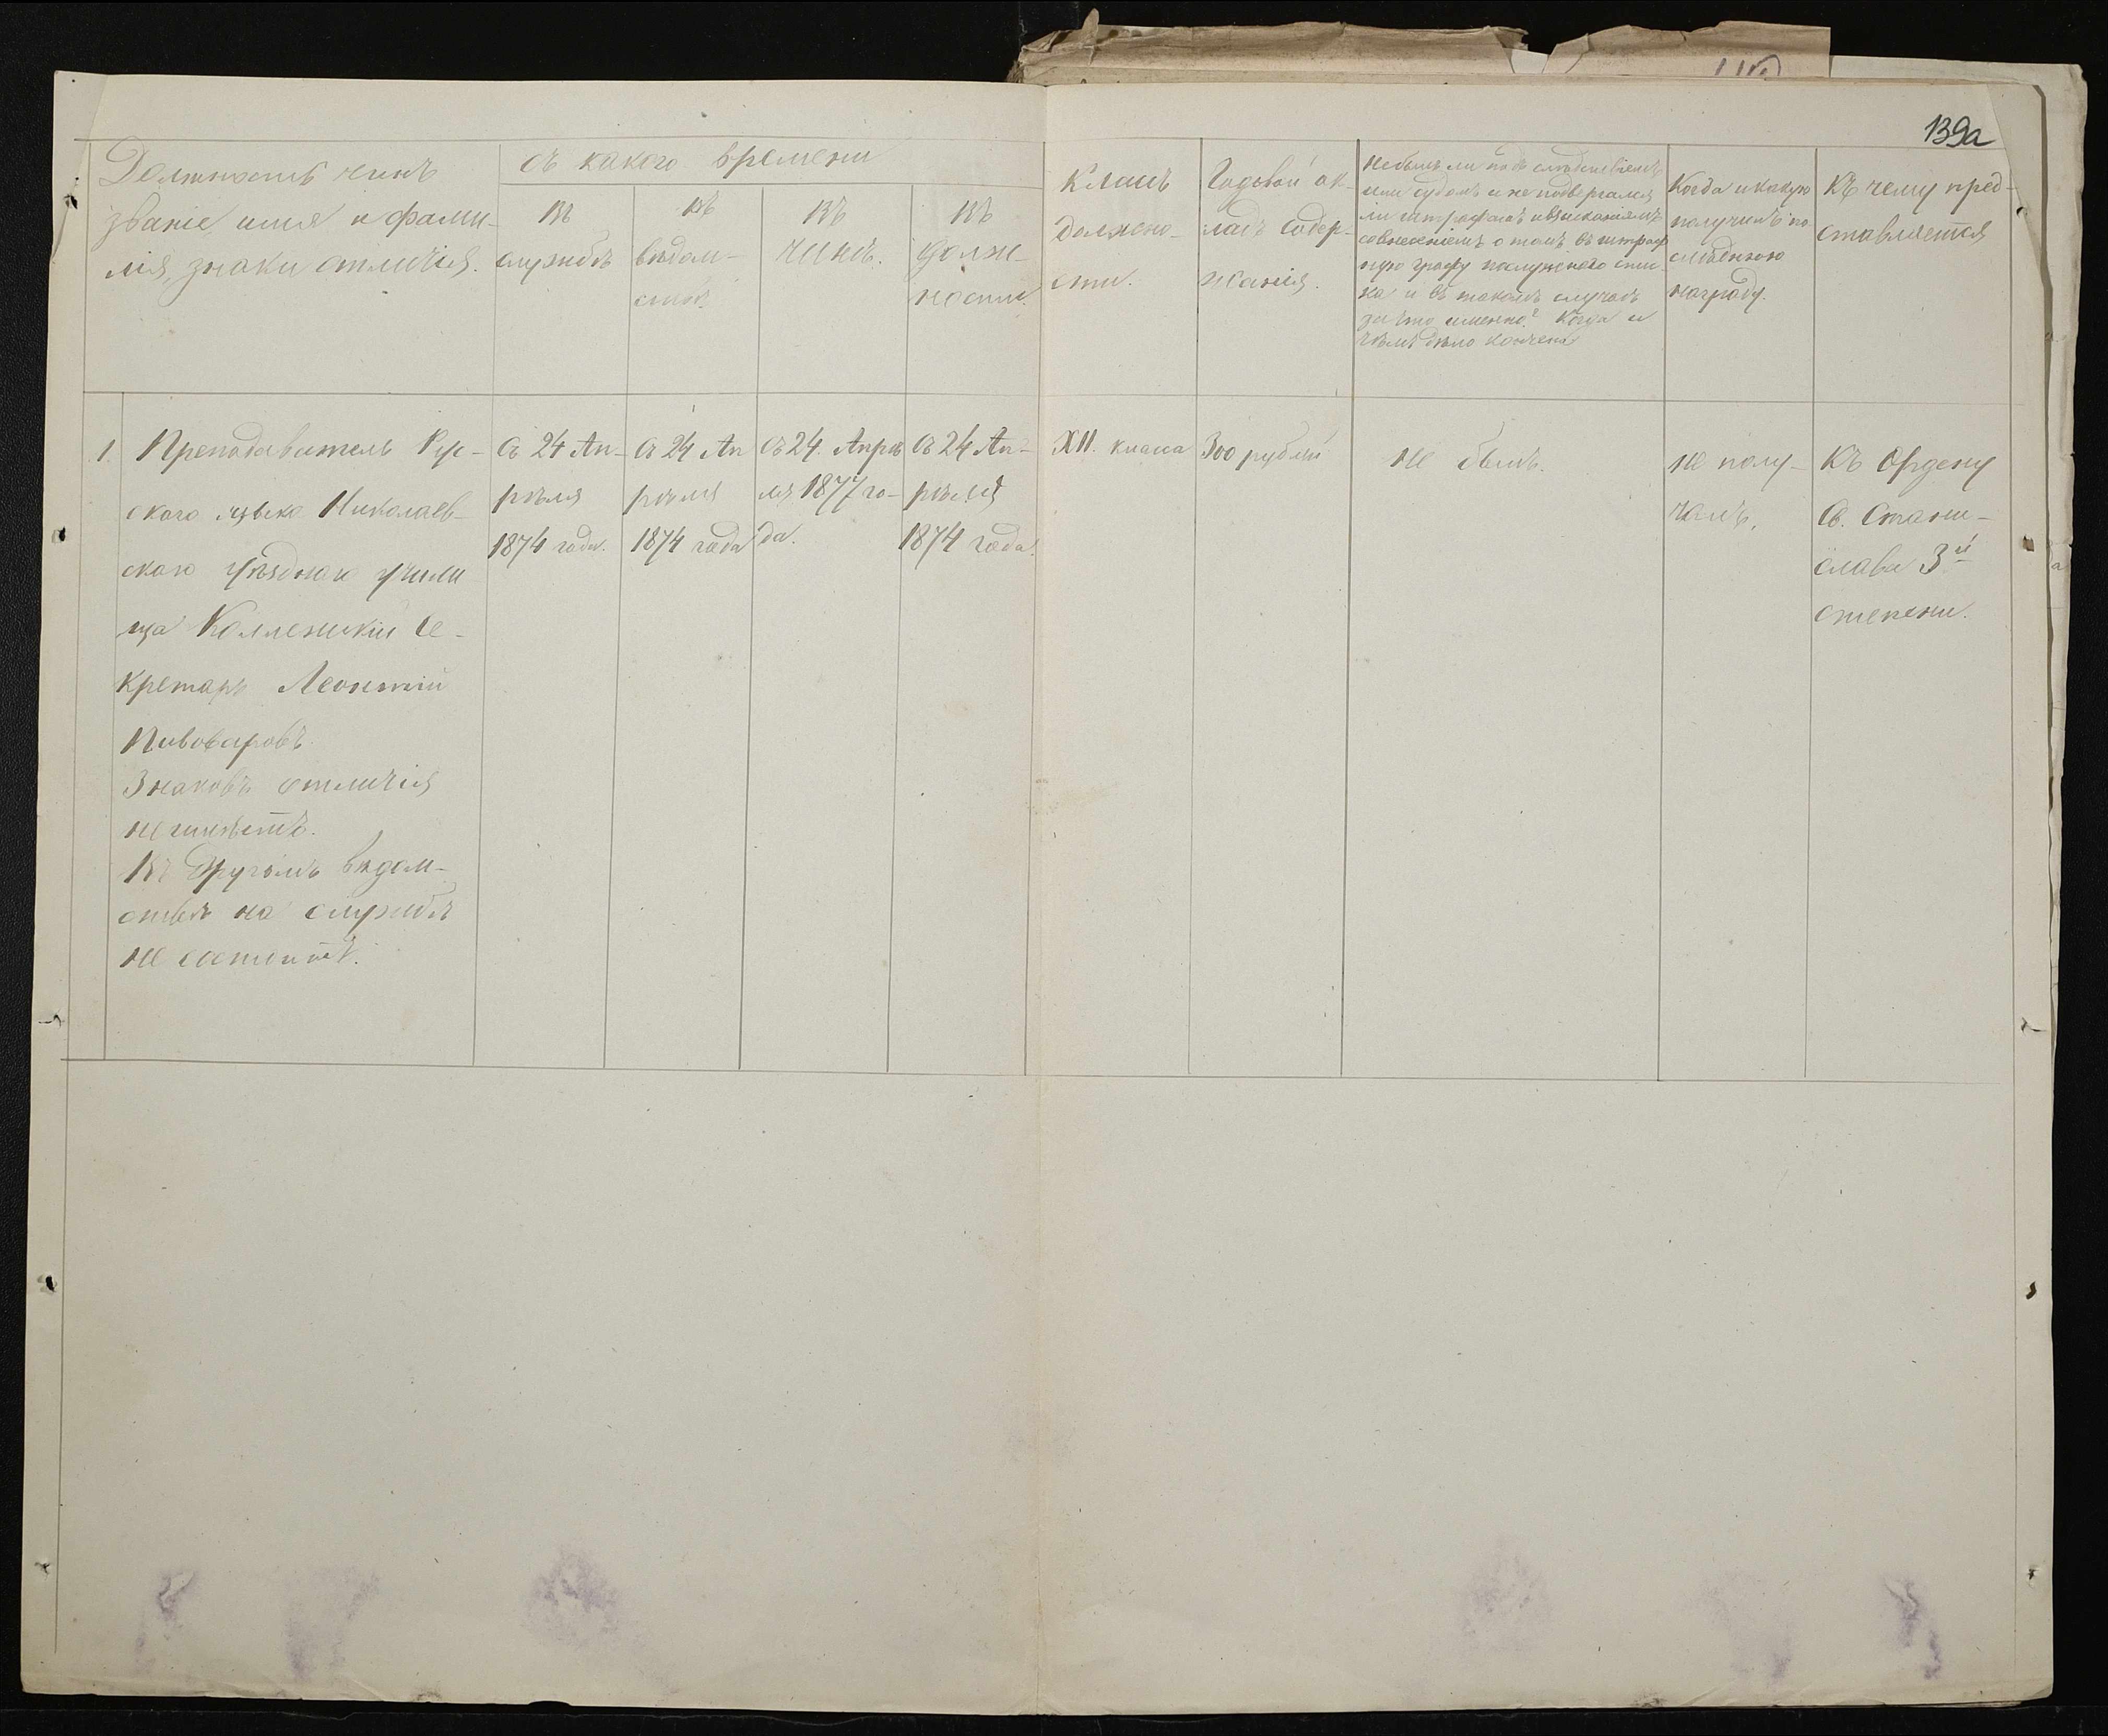 139а
Должность чинъ
званіе, имя и фами-
лія, знаки отличія.
Съ какого времени
въ
службѣ
въ
вѣдом-
ствѣ.
въ
чинѣ.
въ
долж-
ности.
Классъ
должно-
сти.
Годовой ок-
ладъ содер-
жанія.
Не былъ ли подъ слѣдствіемъ
или судомъ и не подвергался
ли штрафамъ и взысканіямъ
со внесеніемъ о томъ въ штраф
ную графу послужнаго спис-
ка и въ такомъ случаѣ
за что именно? Когда и
чѣмъ дѣло кончено
Когда и какую
получилъ по-
слѣднюю
награду.
Къ чему пред-
ставляется
1. Преподаватель Рус-
скаго языка Николаев-
скаго уѣзднаго учили
ща Коллежскій Се-
кретарь Леонтій
Пивоваровъ.
Знаковъ отличія
не имѣетъ.
Въ другомъ вѣдом-
ствѣ на службѣ
не состоитъ.
Съ 24 Ап-
рѣля
1874 года.
Съ 24 Ап
рѣля
1874 года
Съ 24. Апрѣ
ля 1877 го-
да.
Съ 24 Ап-
рѣля
1874 года.
XII. класса
300 рублей
Не былъ.
Не полу-
чалъ.
Къ Ордену
Св. Стани-
слава 3й
степени.